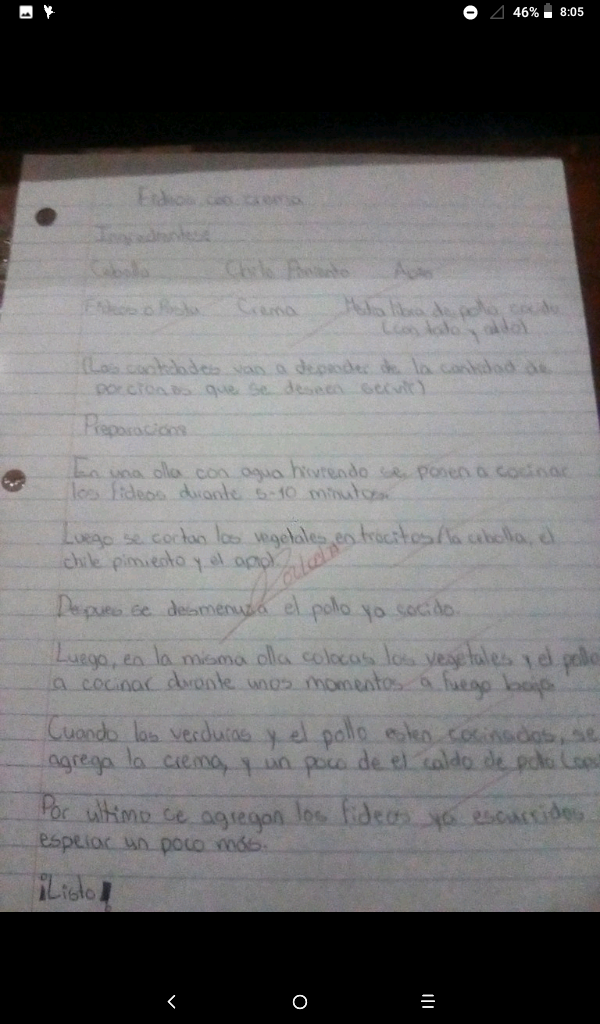 46% 8:05
Fideos con crema
Ingredientes:
Cebolla Chile Pimiento Apio
Fideos o Pasta Crema Media libra de pollo cocido
(con todo y caldo)
(Las cantidades van a depender de la cantidad de
porciones que se deseen servir)
Preparacion:
En una olla con agua hirviendo se ponen a cocinar
los fideos durante 5-10 minutos.
Luego se cortan los vegetales en trocitos (la cebolla, el
chile pimiento y el apio)
Depues se desmenuza el pollo ya cocido.
Luego, en la misma olla colocas los vegetales y el pollo
a cocinar durante unos momentos a fuego bajo
Cuando las verduras y el pollo esten cocinados, se
agrega la crema, y un poco de el caldo de pollo
Por ultimo se agregan los fideos ya escurridos
esperar un poco más.
¡Listo!